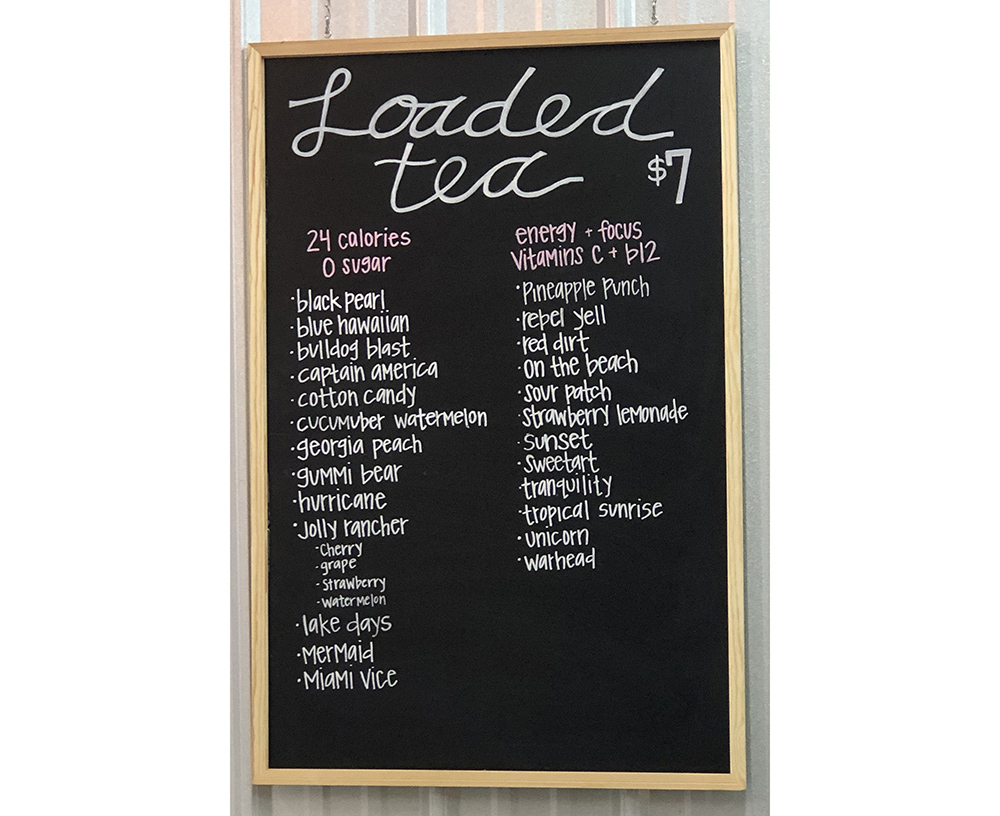 Loaded
tea
$7
24 calories
0 sugar
·black pearl
·blue hawaiian
·bulldog blast
·captain america
·cotton candy
·cucumuber watermelon
·georgia peach
·gummi bear
·hurricane
·Jolly rancher
-Cherry
-grape
-Strawberry
-watermelon
·lake days
·Mermaid
·Miami Vice
energy + focus
Vitamins C + b12
·Pineapple Punch
·rebel yell
·red dirt
·on the beach
·sour patch
·strawberry lemonade
·sunset
·sweetart
·tranquility
·tropical sunrise
·unicorn
·warhead